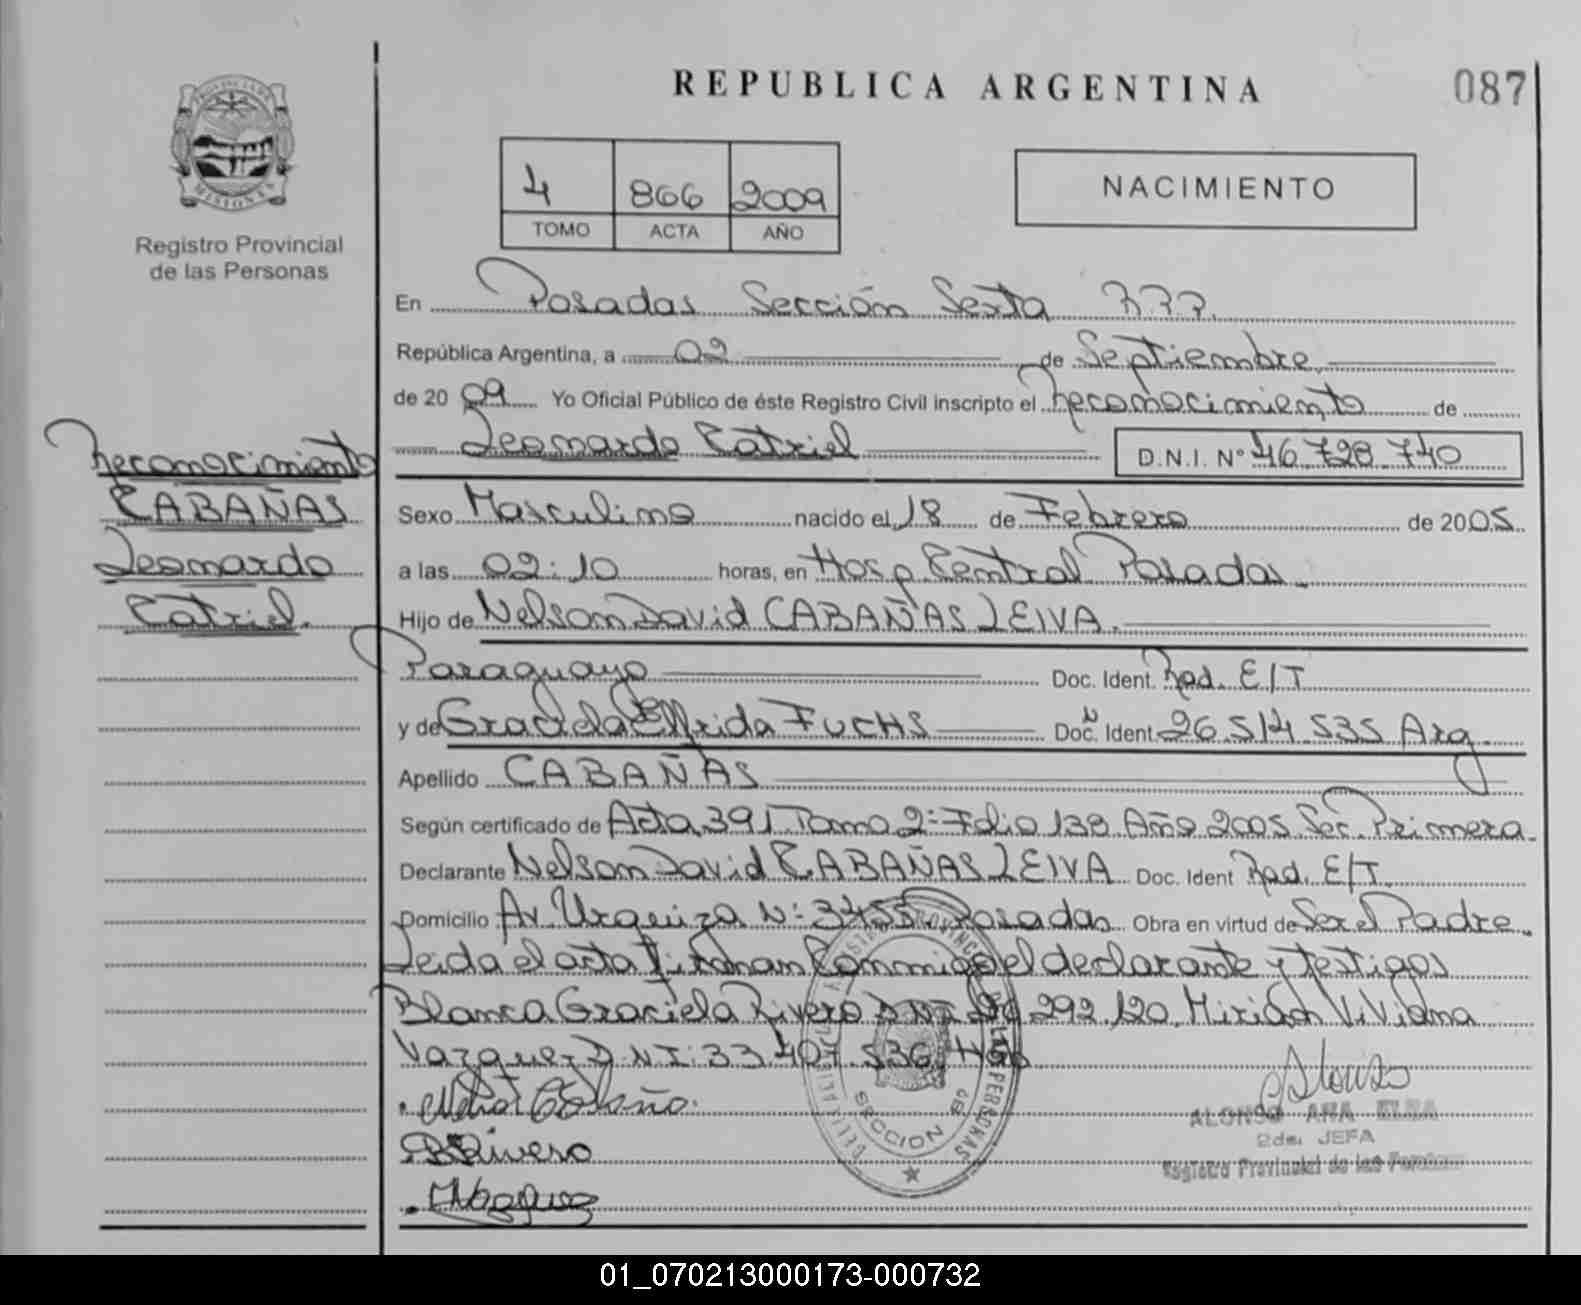 REPUBLICA ARGENTINA
087
PROVINCIA DE
MISIONES
Registro Provincial
de las Personas
4 866 2009
TOMO ACTA AÑO
NACIMIENTO
En Posadas Sección Sexta
República Argentina, a 02 de Septiembre
de 2009 Yo Oficial Público de éste Registro Civil inscripto el reconocimiento de
Leonardo Catriel D.N.I. N° 46.728.740
Reconocimiento
CABAÑAS
Leonardo
Catriel.
Sexo Masculino nacido el 18 de Febrero de 2005
a las 02:10 horas, en Hosp Central Posadas.
Hijo de Nelson David CABAÑAS LEIVA.
Paraguayo Doc. Ident. Rad. E/T
y de Graciela Elfrida FUCHS Doc. N Ident. 26.514.535 Arg.
Apellido CABAÑAS
Según certificado de Acta 391 Tomo 2: Folio 138 Año 2005 Sec. Primera.
Declarante Nelson David CABAÑAS LEIVA Doc. Ident Rad. E/T.
Domicilio Av. Urquiza N: 3455 Posadas Obra en virtud de Ser el Padre.
Leida el acta Firman Conmigo el declarante y testigos
Blanca Graciela Rivero DNI 292.120. Miriam Viviana
Vazquez D.N.I: 33.407.536
B Rivero
Alonso
ALONSO ANA ELBA
2da. JEFA
Registro Provincial de las Personas
SECCION 6ª
01_070213000173-000732